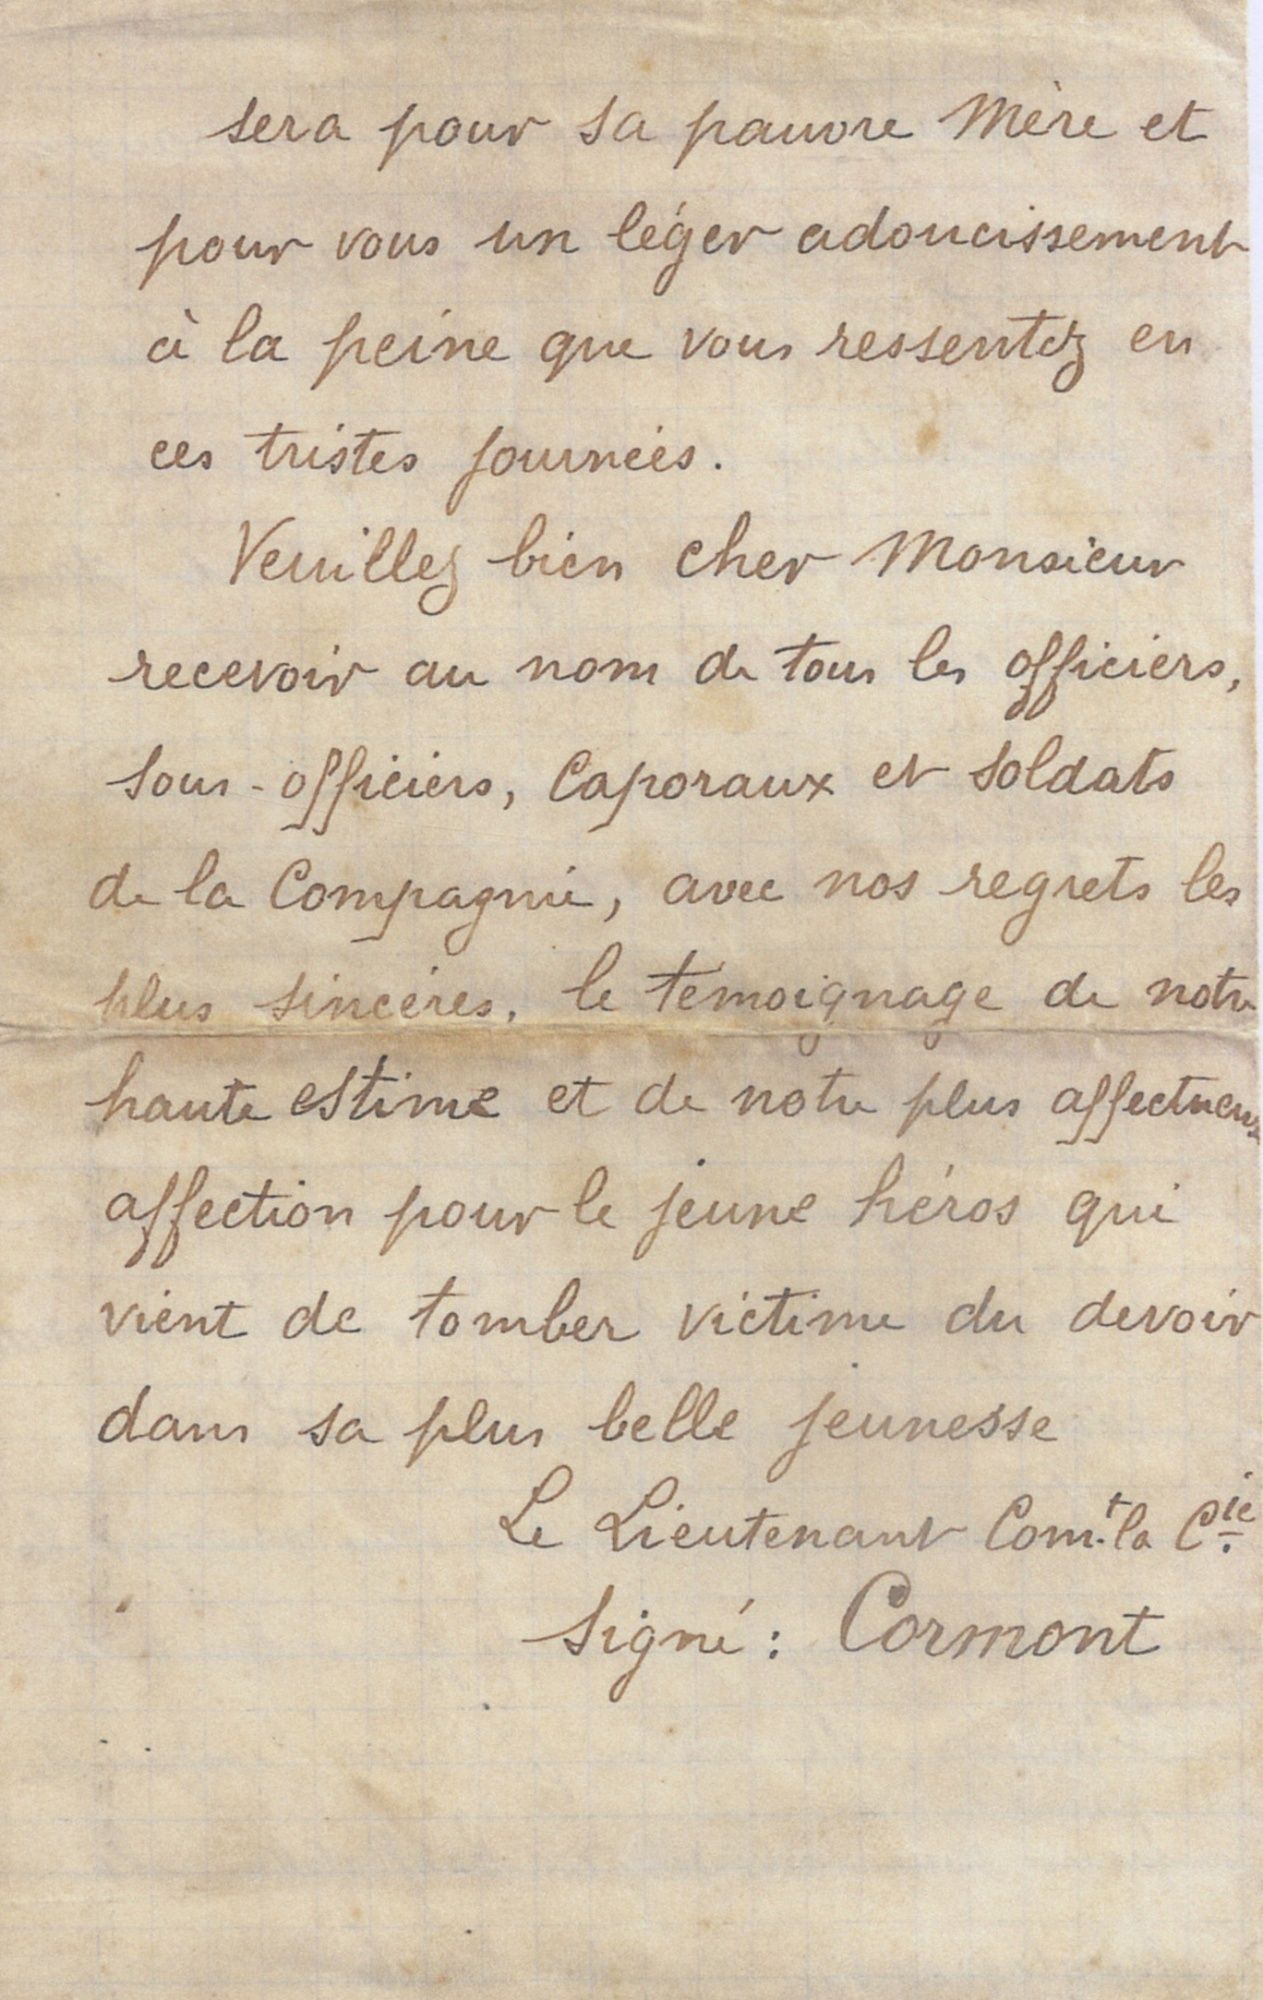 sera pour sa pauvre Mère et
pour vous un léger adoucissement
à la peine que vous ressentez en
ces tristes journées.
Veuillez bien cher Monsieur
recevoir au nom de tous les officiers,
sous-officiers, Caporaux et soldats
de la Compagnie, avec nos regrets les
plus sincères, le témoignage de notre
haute estime et de notre plus affectueuse
affection pour le jeune héros qui
vient de tomber victime du devoir
dans sa plus belle jeunesse
Le Lieutenant Com.t la Cie.
Signé : Cormont